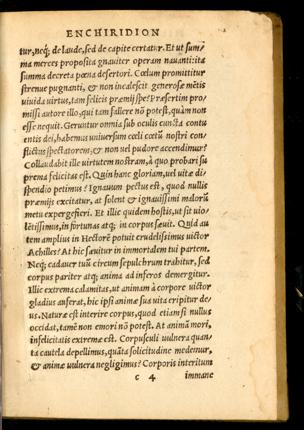 ENCHIRIDION
tur, neq; de laude, sed de capite certatur. Et ut sum/
ma merces proposita gnauiter operam nauanti: ita
summa decreta pœna desertori. Cœlum promittitur
strenue pugnanti, & non incalescit generosæ mētis
uiuida uirtus, tam felicis præmij spe? Præsertim pro/
missi autore illo, qui tam fallere nō potest, quàm non
esse nequit. Geruntur omnia sub oculis cuncta contu
entis dei, habemus uniuersum cœli cœtū nostri con/
flictus spectatorem: & non uel pudore accendimur?
Collaudabit ille uirtutem nostram, à quo probari su
prema felicitas est. Quin hanc gloriam, uel uitæ di/
spendio petimus? Ignauum pectus est, quod nullis
præmijs excitatur, at solent & ignauissimi malorū
metu expergefieri. Et illic quidem hostis, ut sit uio/
lētissimus, in fortunas atq; in corpus sæuit. Quid au
tem amplius in Hectorē potuit crudelissimus uictor
Achilles? At hic sæuitur in immortalem tui partem.
Neq; cadauer tuū circum sepulchrum trahitur, sed
corpus pariter atq; anima ad inferos demergitur.
Illic extrema calamitas, ut animam à corpore uictor
gladius auferat, hic ipsi animæ sua uita eripitur de/
us. Naturæ est interire corpus, quod etiam si nullus
occidat, tamē non emori nō potest. At animā mori,
infelicitatis extremæ est. Corpusculi uulnera quan/
ta cautela depellimus, quāta solicitudine medemur,
& animæ uulnera negligimus? Corporis interitum
c 4 immane